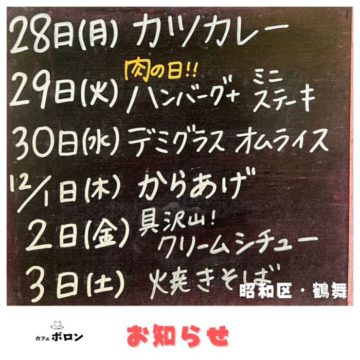 28日(月) カツカレー
肉の日!!
29日(火) ハンバーグ+ミニステーキ
30日(水) デミグラス オムライス
12/1日(木) からあげ
2日(金) 具沢山!クリームシチュー
3日(土) 焼きそば
昭和区・鶴舞
カフェ ボロン
お知らせ